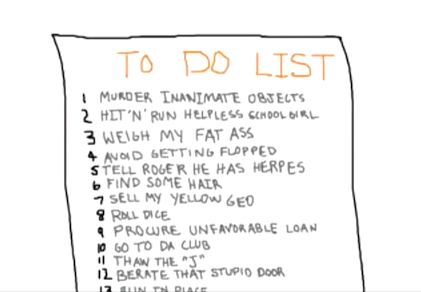 TO DO LIST
1 MURDER INANIMATE OBJECTS
2 HIT 'N' RUN HELPLESS SCHOOLGIRL
3 WEIGH MY FAT ASS
4 AVOID GETTING FLOPPED
5 TELL ROGER HE HAS HERPES
6 FIND SOME HAIR
7 SELL MY YELLOW GEO
8 ROLL DICE
9 PROCURE UNFAVORABLE LOAN
10 GO TO DA CLUB
11 THAW THE "J"
12 BERATE THAT STUPID DOOR
13 RUN IN PLACE